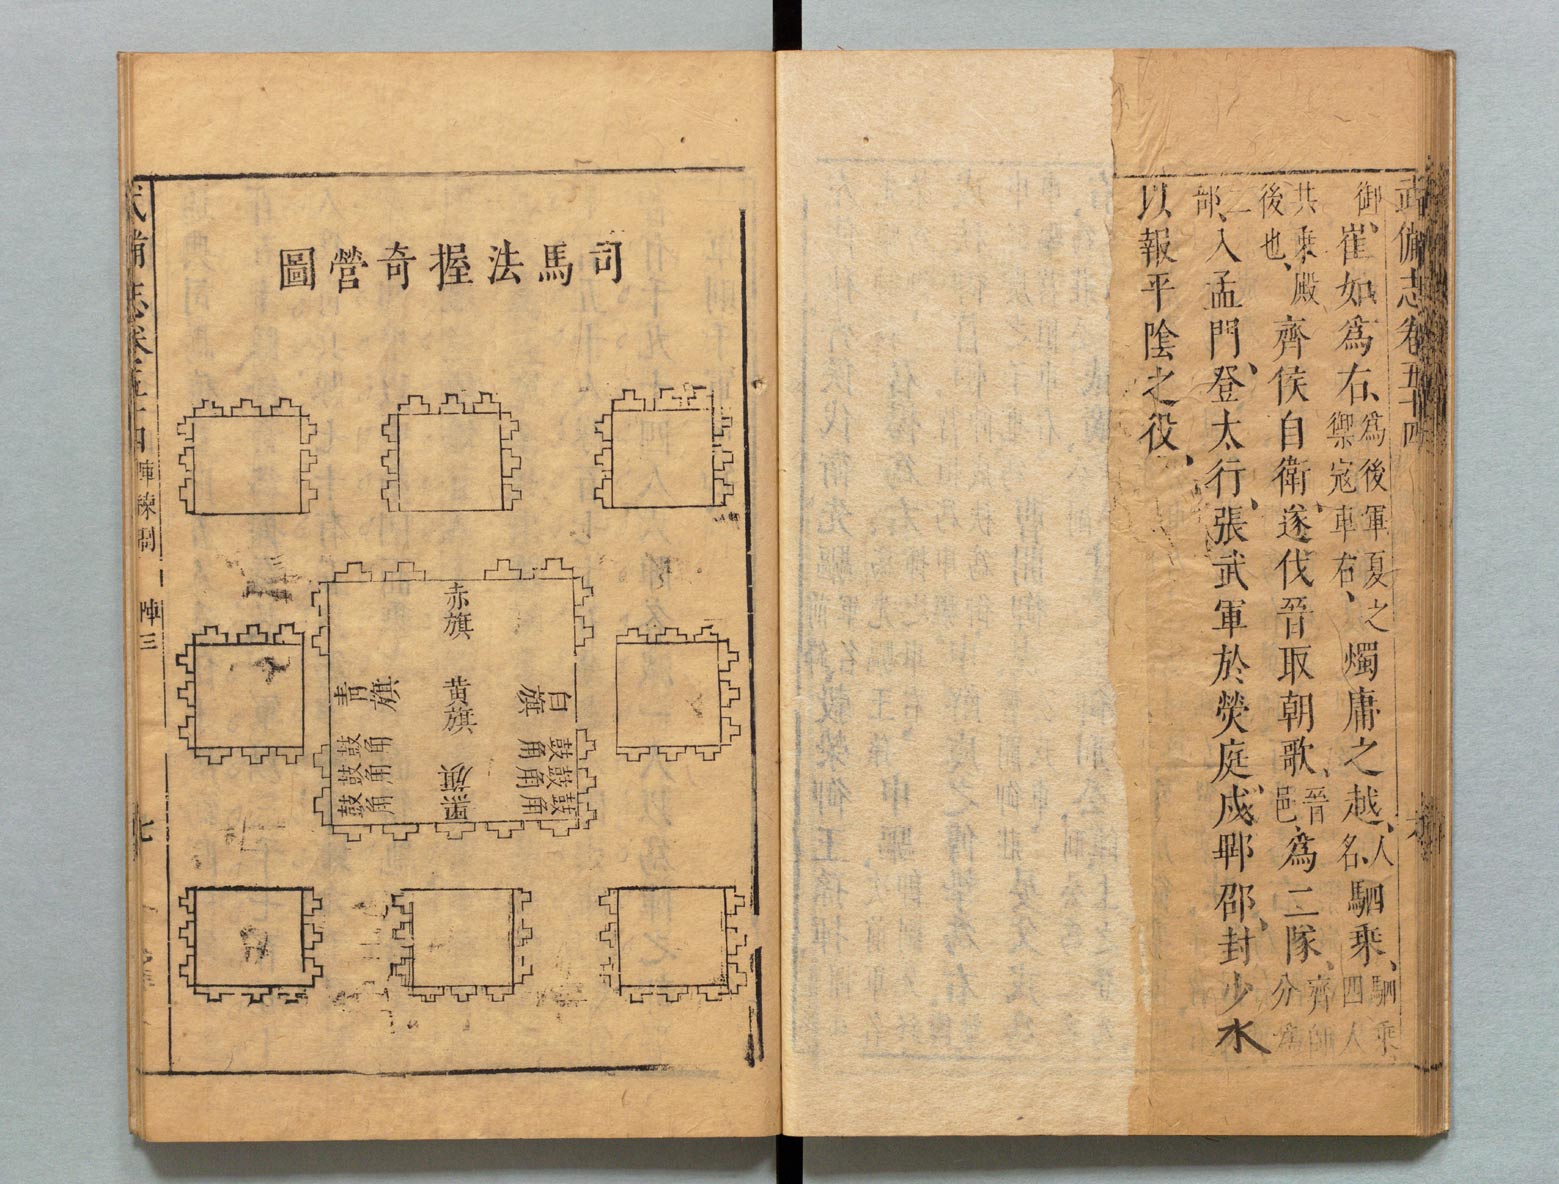 武備志卷五十四
御、崔如為右、為後軍夏之
禦寇車右、燭庸之越、人
名、駟乘、駟乘
四人
共乘殿
後也、齊侯自衛、遂伐晉取朝歌、晉
邑、為二隊、齊師
分為
二
部、入孟門、登太行、張武軍於熒庭、戍郫邵、封少水
以報平陰之役、
司馬法握奇營圖
白旗
鼓鼓鼓
角角角
赤旗
黃旗
黑旗
青旗
鼓鼓鼓
角角角
武備志卷五十四 陣練制 陣三 七